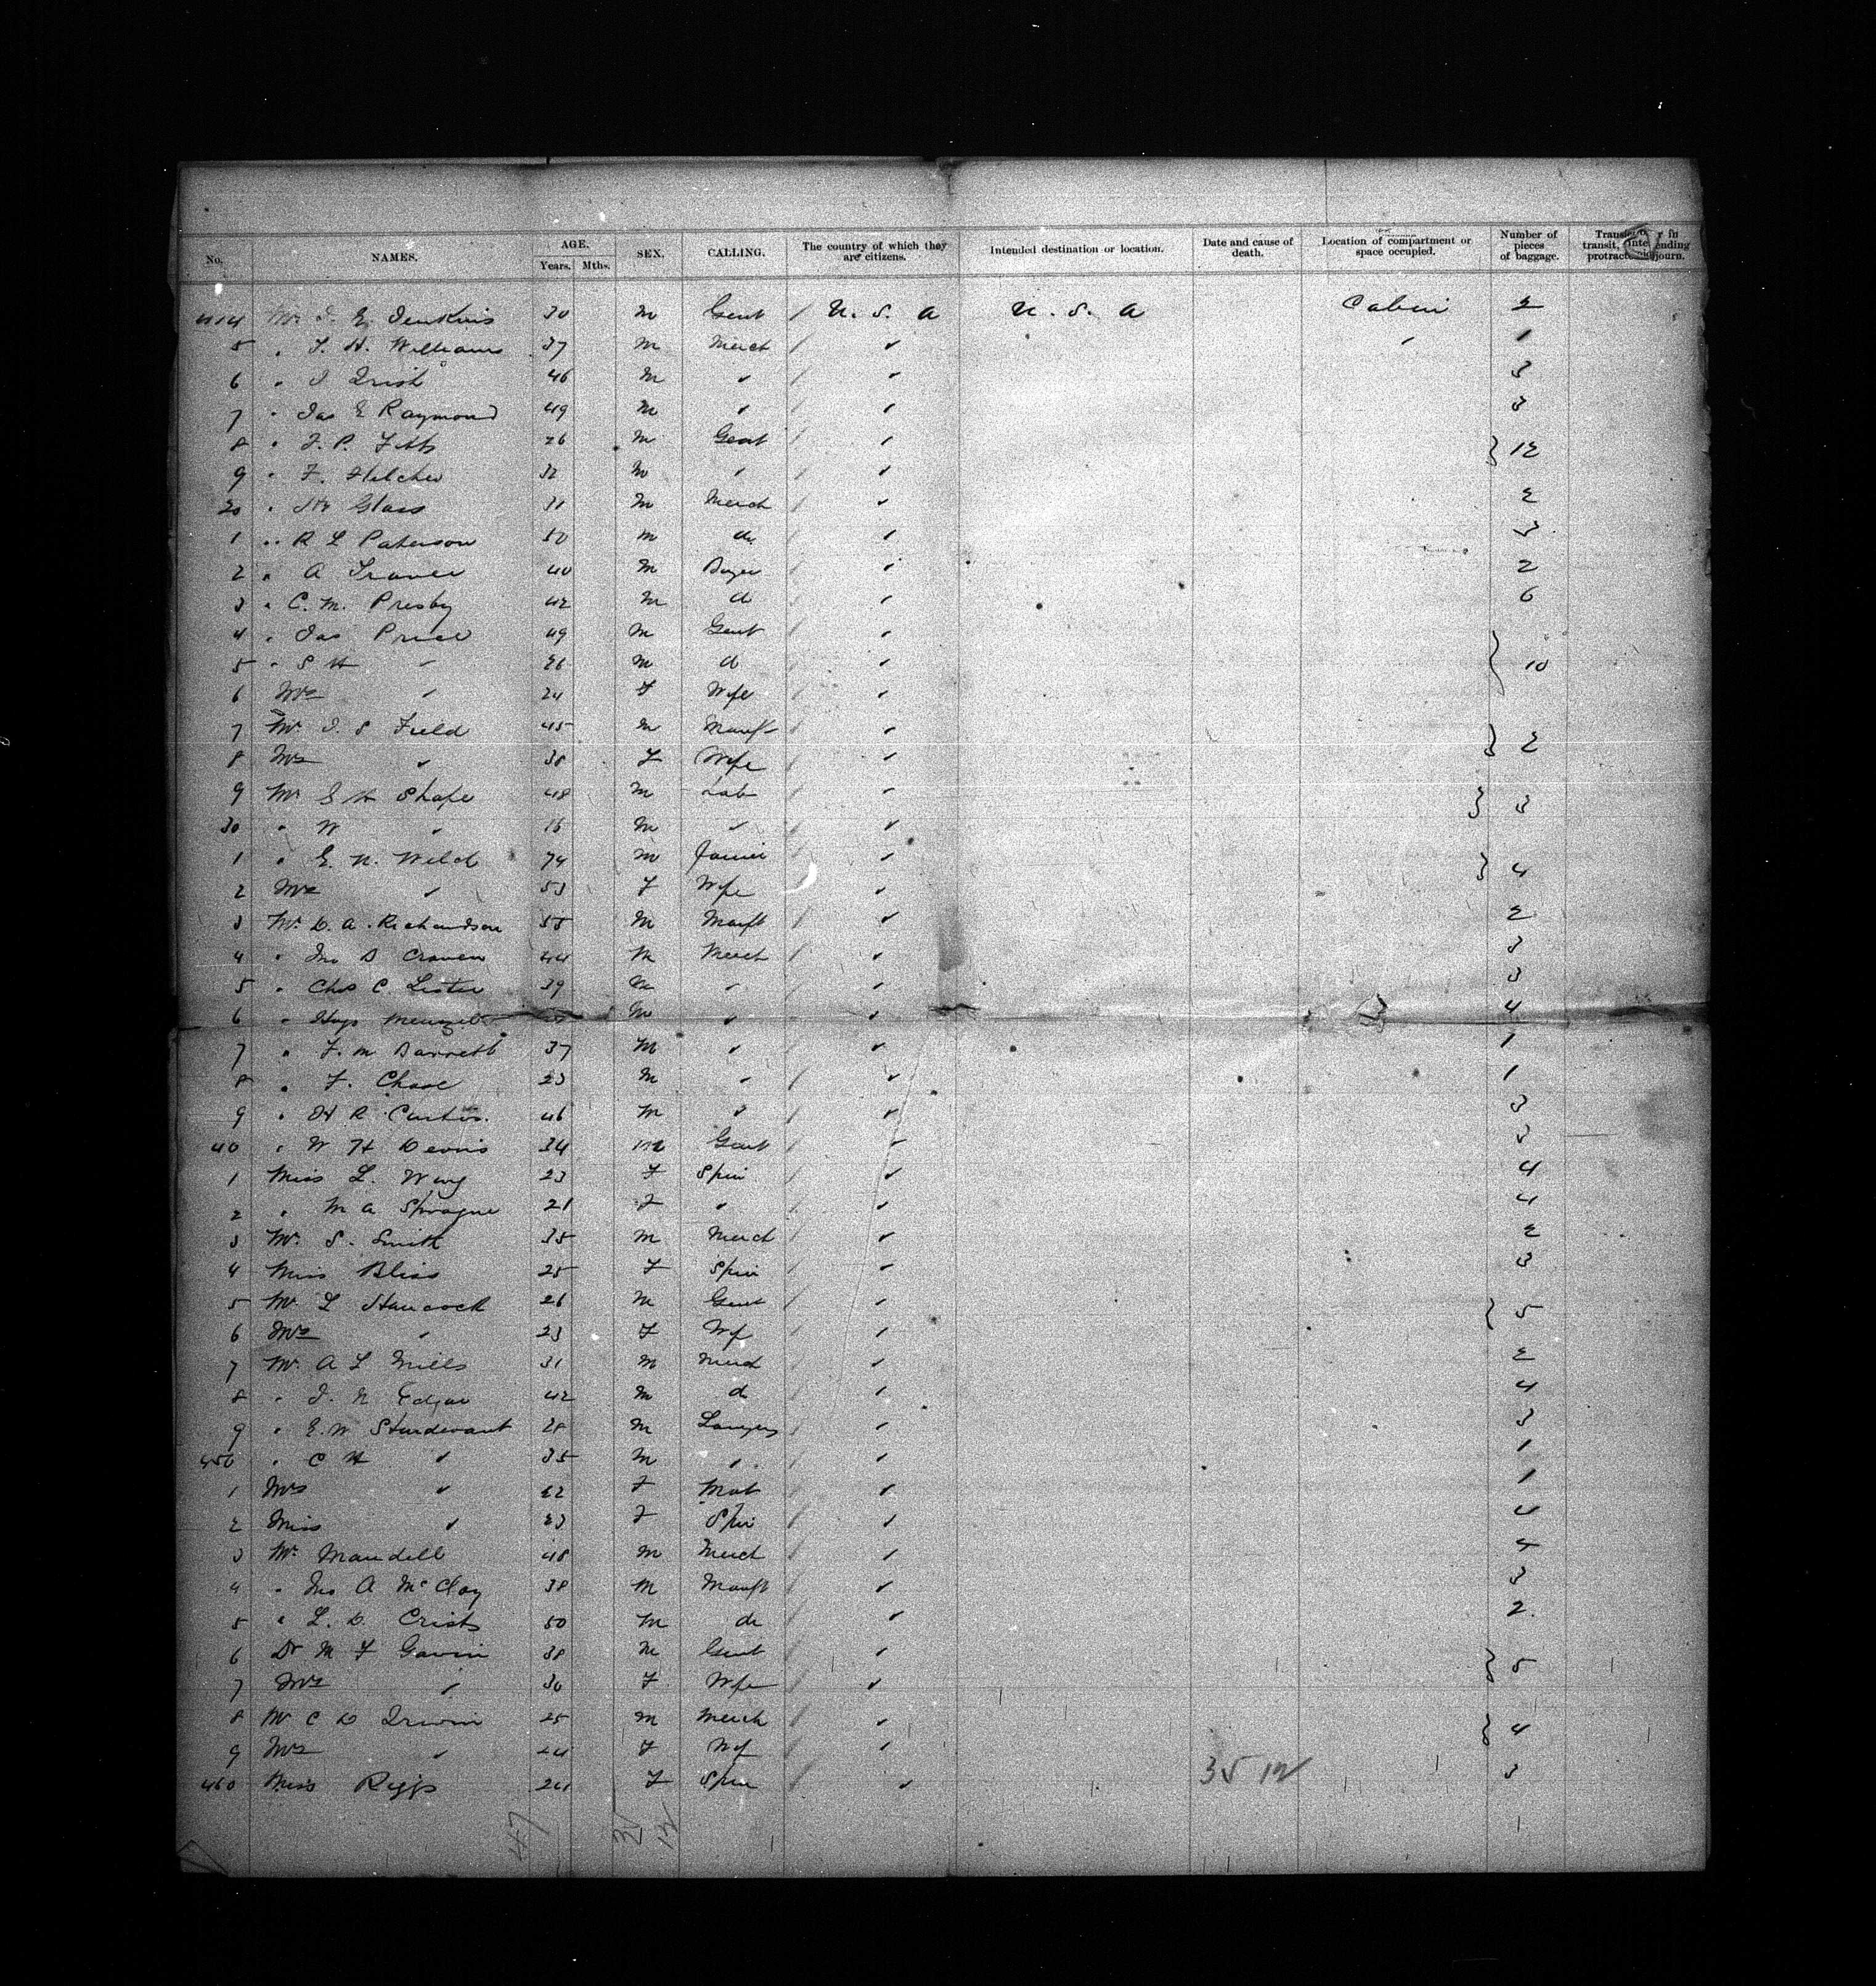 No. NAMES. AGE. Years. Mths. SEX. CALLING. The country of which they are citizens. Intended destination or location. Date and cause of death. Location of compartment or space occupied. Number of pieces of baggage. transit, protracted
414 Mr. J. E. Jenkins 30 M Gent / U. S. A U. S. A Cabin 2
5 " T. H. Williams 37 M Merch / " " 1
6 " J Irish 46 M " / " 3
7 " Jas E Raymond 49 M " / " 3
8 " F. P. Fitts 26 M Gent / " } 12
9 " F. 32 M " / "
20 " Glass 31 M Merch / " 2
1 " R L Paterson 50 M do / " 3
2 " A 40 M Buyer / " 2
3 " C. M. Presby 42 M do / " 6
4 " Jas Price 49 M Gent / " } 10
5 " S H " 26 M do / "
6 Mrs " 24 F Wife / "
7 Mr J. S Field 45 M Manf / " } 2
8 Mrs " 38 F Wife / "
9 Mr E H Shafe 48 M / " } 3
30 " W " M " / "
1 " E. N. Welch 74 M / " } 4
2 Mrs " 53 F Wife / "
3 Mr D. A. Richardson 55 M Manft / " 2
4 " Jno D Craven 44 M Merch / " 3
5 " Chas C. Lester 39 M " / " 3
6 " Hugo M " / " 4
7 " F. M Barrett 37 M " / " 1
8 " F. Chase 23 M " / " 1
9 " H R Curtis. 46 M " / " 3
40 " W H Devins 34 M Gent / " 3
1 Miss L. Wing 23 F Spin / " 4
2 " M A Sprague 21 F " / " 4
3 Mr. S. Smith 35 M Merch / " 2
4 Miss Bliss 25 F Spin / " 3
5 Mr L Hancock 26 M Gent / " } 5
6 Mrs " 23 F Wf / "
7 Mr. A L Mills 31 M Merch / " 2
8 " J. N Edgar 42 M do / " 4
9 " E. W Sturdevant 28 M Lawyer / " 3
450 " C H " 35 M " / " 1
1 Mrs " 62 F Mat / " 1
2 Miss " 23 F Spin / " 4
3 Mr Mandell 48 M Merch / " 4
4 " Jno A McCloy 38 M Manft / " 3
5 " L. D. Crist 50 M do / " 2.
6 Dr M F Gavin 38 M Gent / " } 5
7 Mrs " 30 F Wife / "
8 Mr C D Irwin 25 M Merch / " } 4
9 Mrs " 24 F Wf / "
460 Miss Riggs 24 F Spin / " 3
35 12
47 35 12